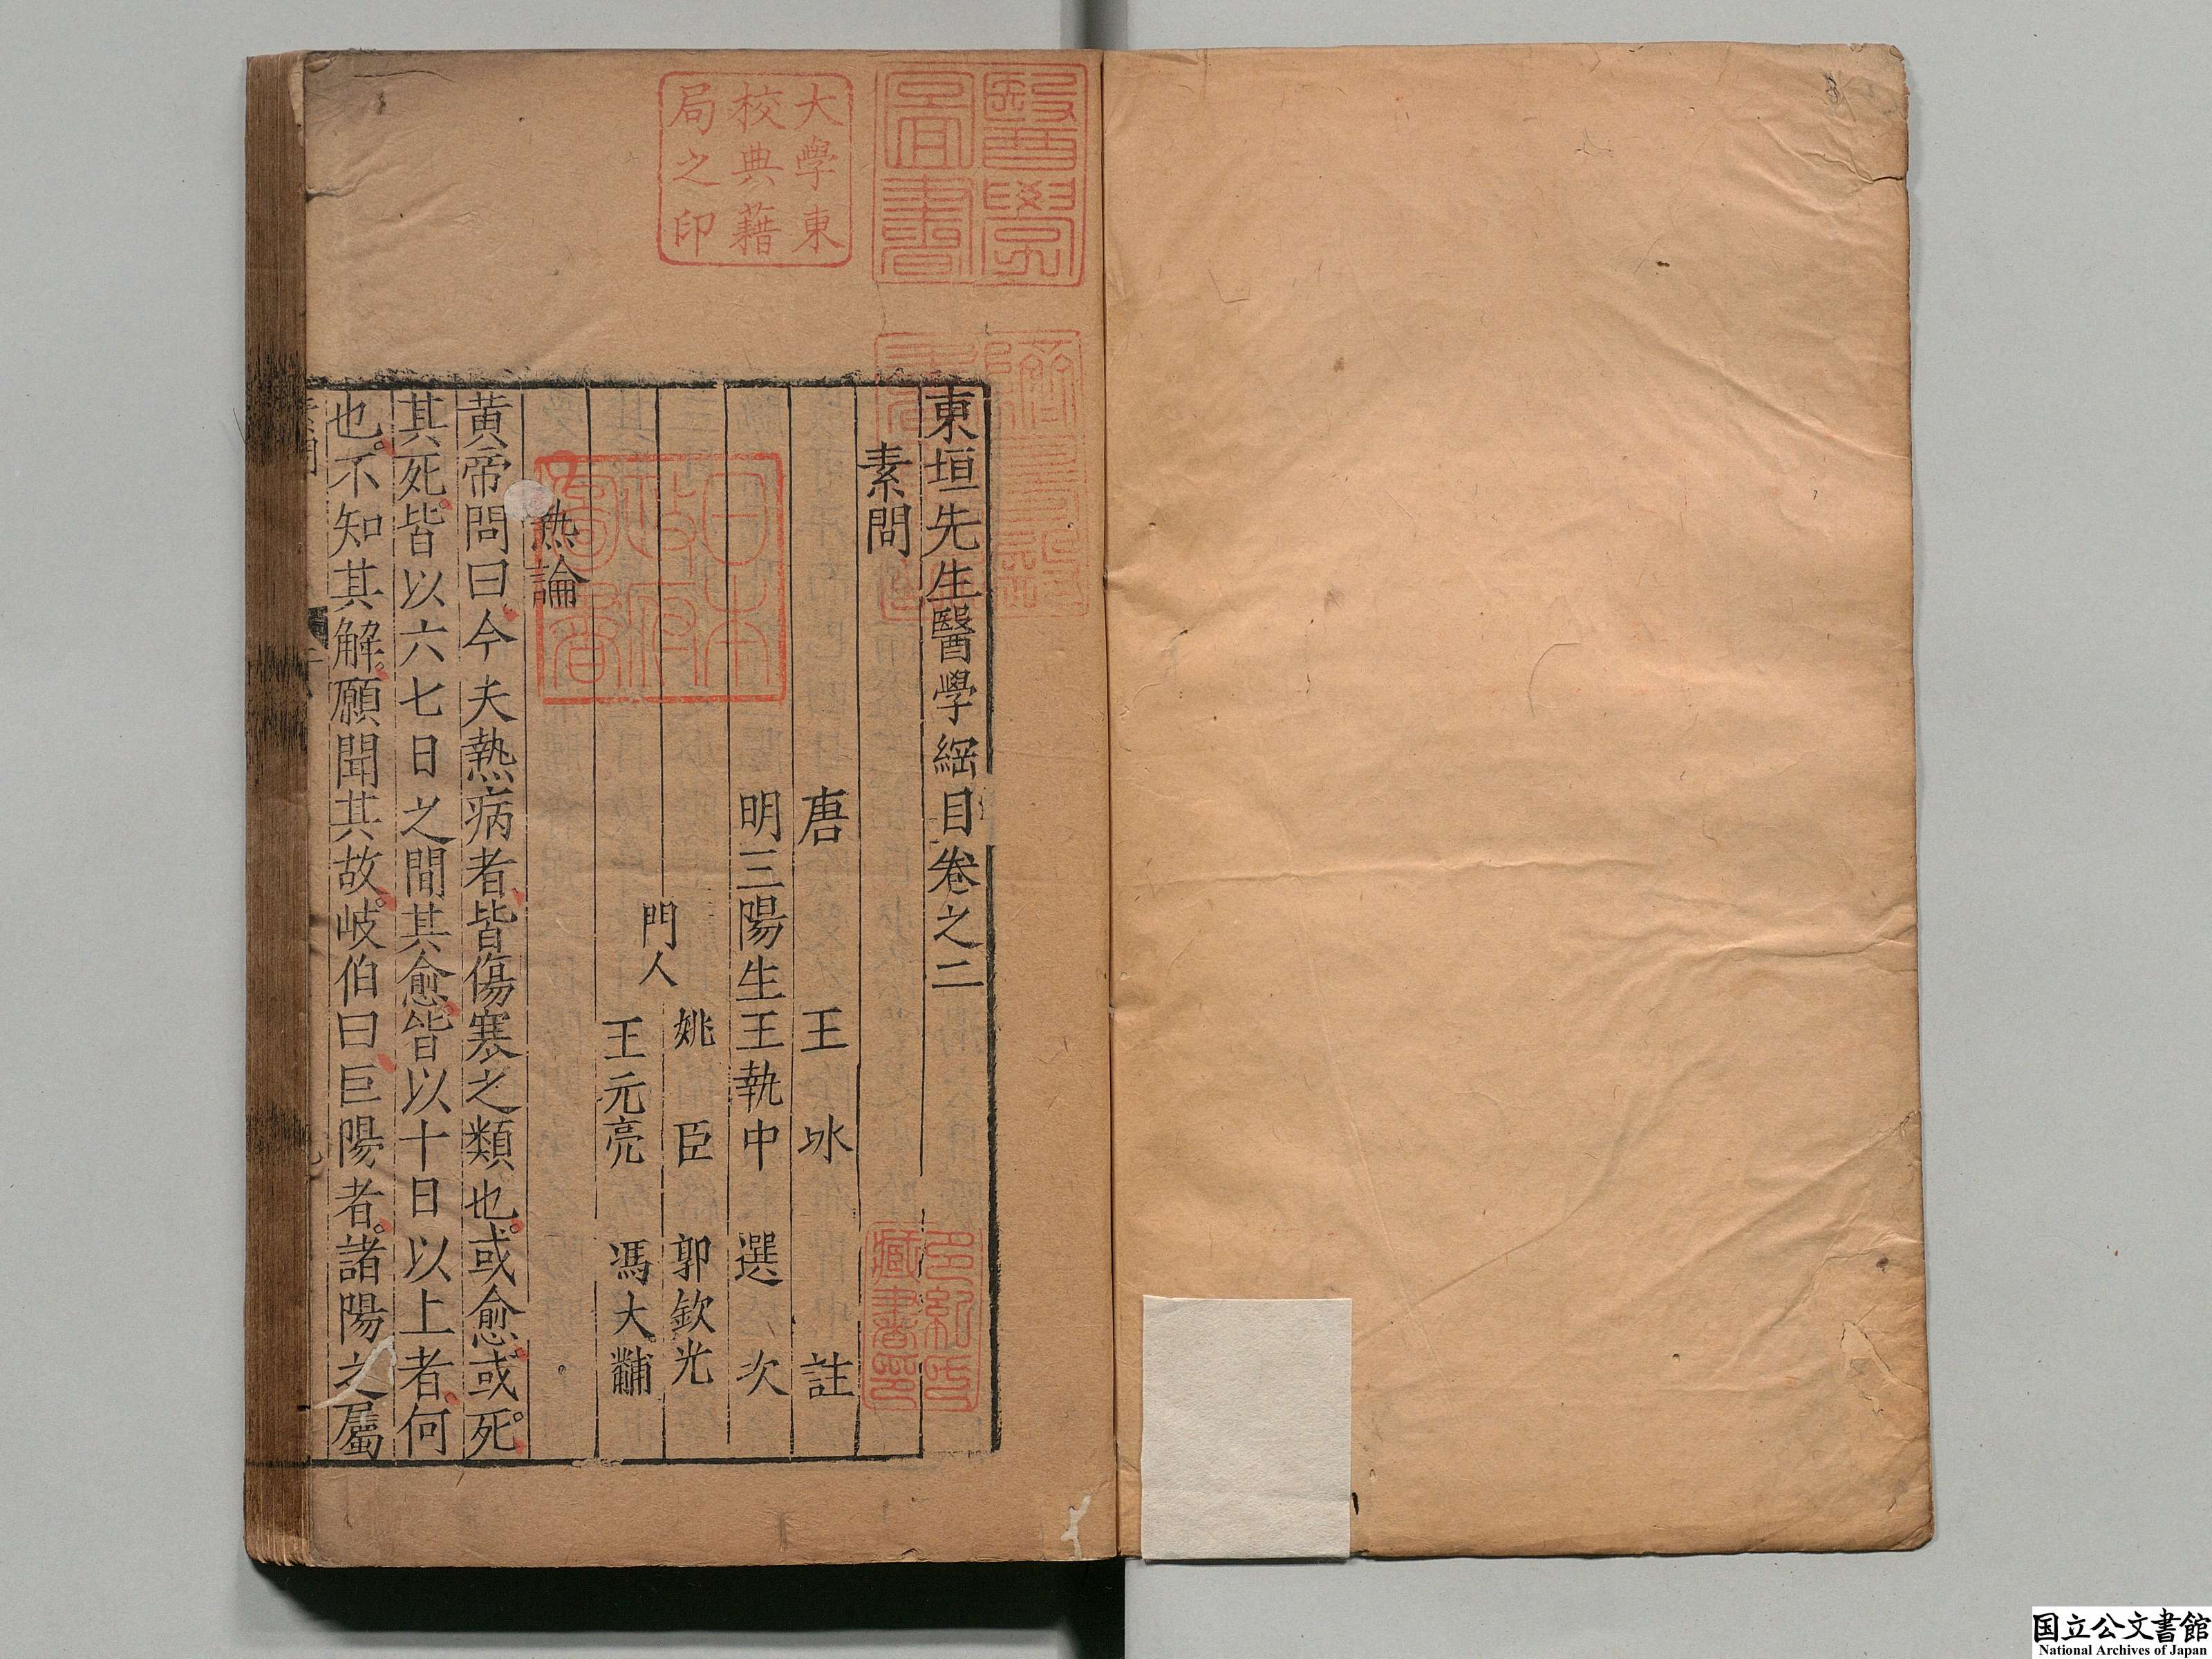 東垣先生醫學綱目卷之二
素問
唐 王 冰 註
明三陽生王執中 選 次
門人 姚 臣 郭欽光
王元亮 馮大黼
熱論
黃帝問曰今夫熱病者皆傷寒之類也。或愈。或死。
其死。皆以六七日之間其愈。皆以十日以上者。何
也。不知其解。願聞其故。岐伯曰巨陽者。諸陽之屬
醫學圖書
大學東
校典藉
局之印
日本
政府
圖書
多紀氏
藏書印
国立公文書館
National Archives of Japan